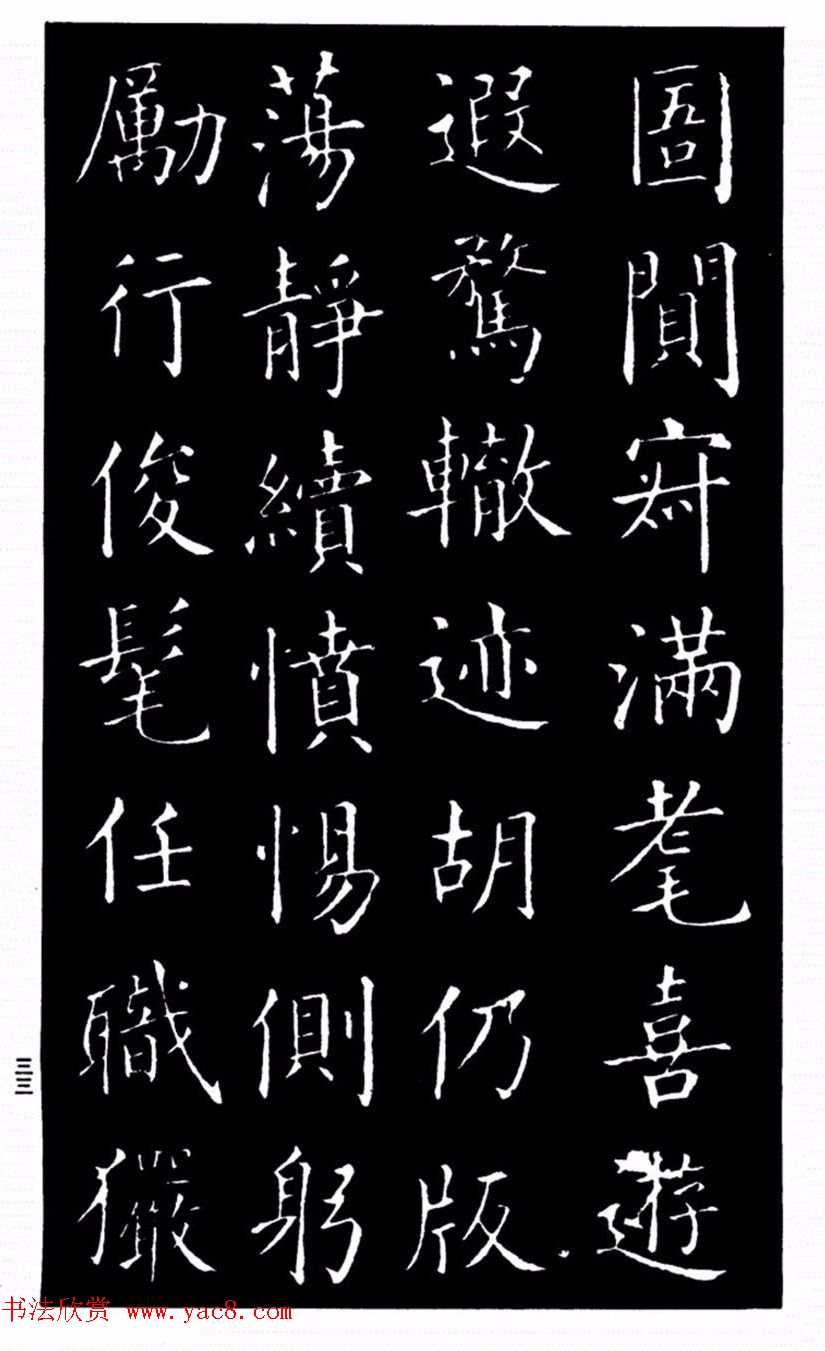 圄閴㝥滿耄喜遊
遐騖轍迹胡仍版
蕩靜續憤惕側躬
勵行俊髦任職玁
三三
书法欣赏 www.yac8.com